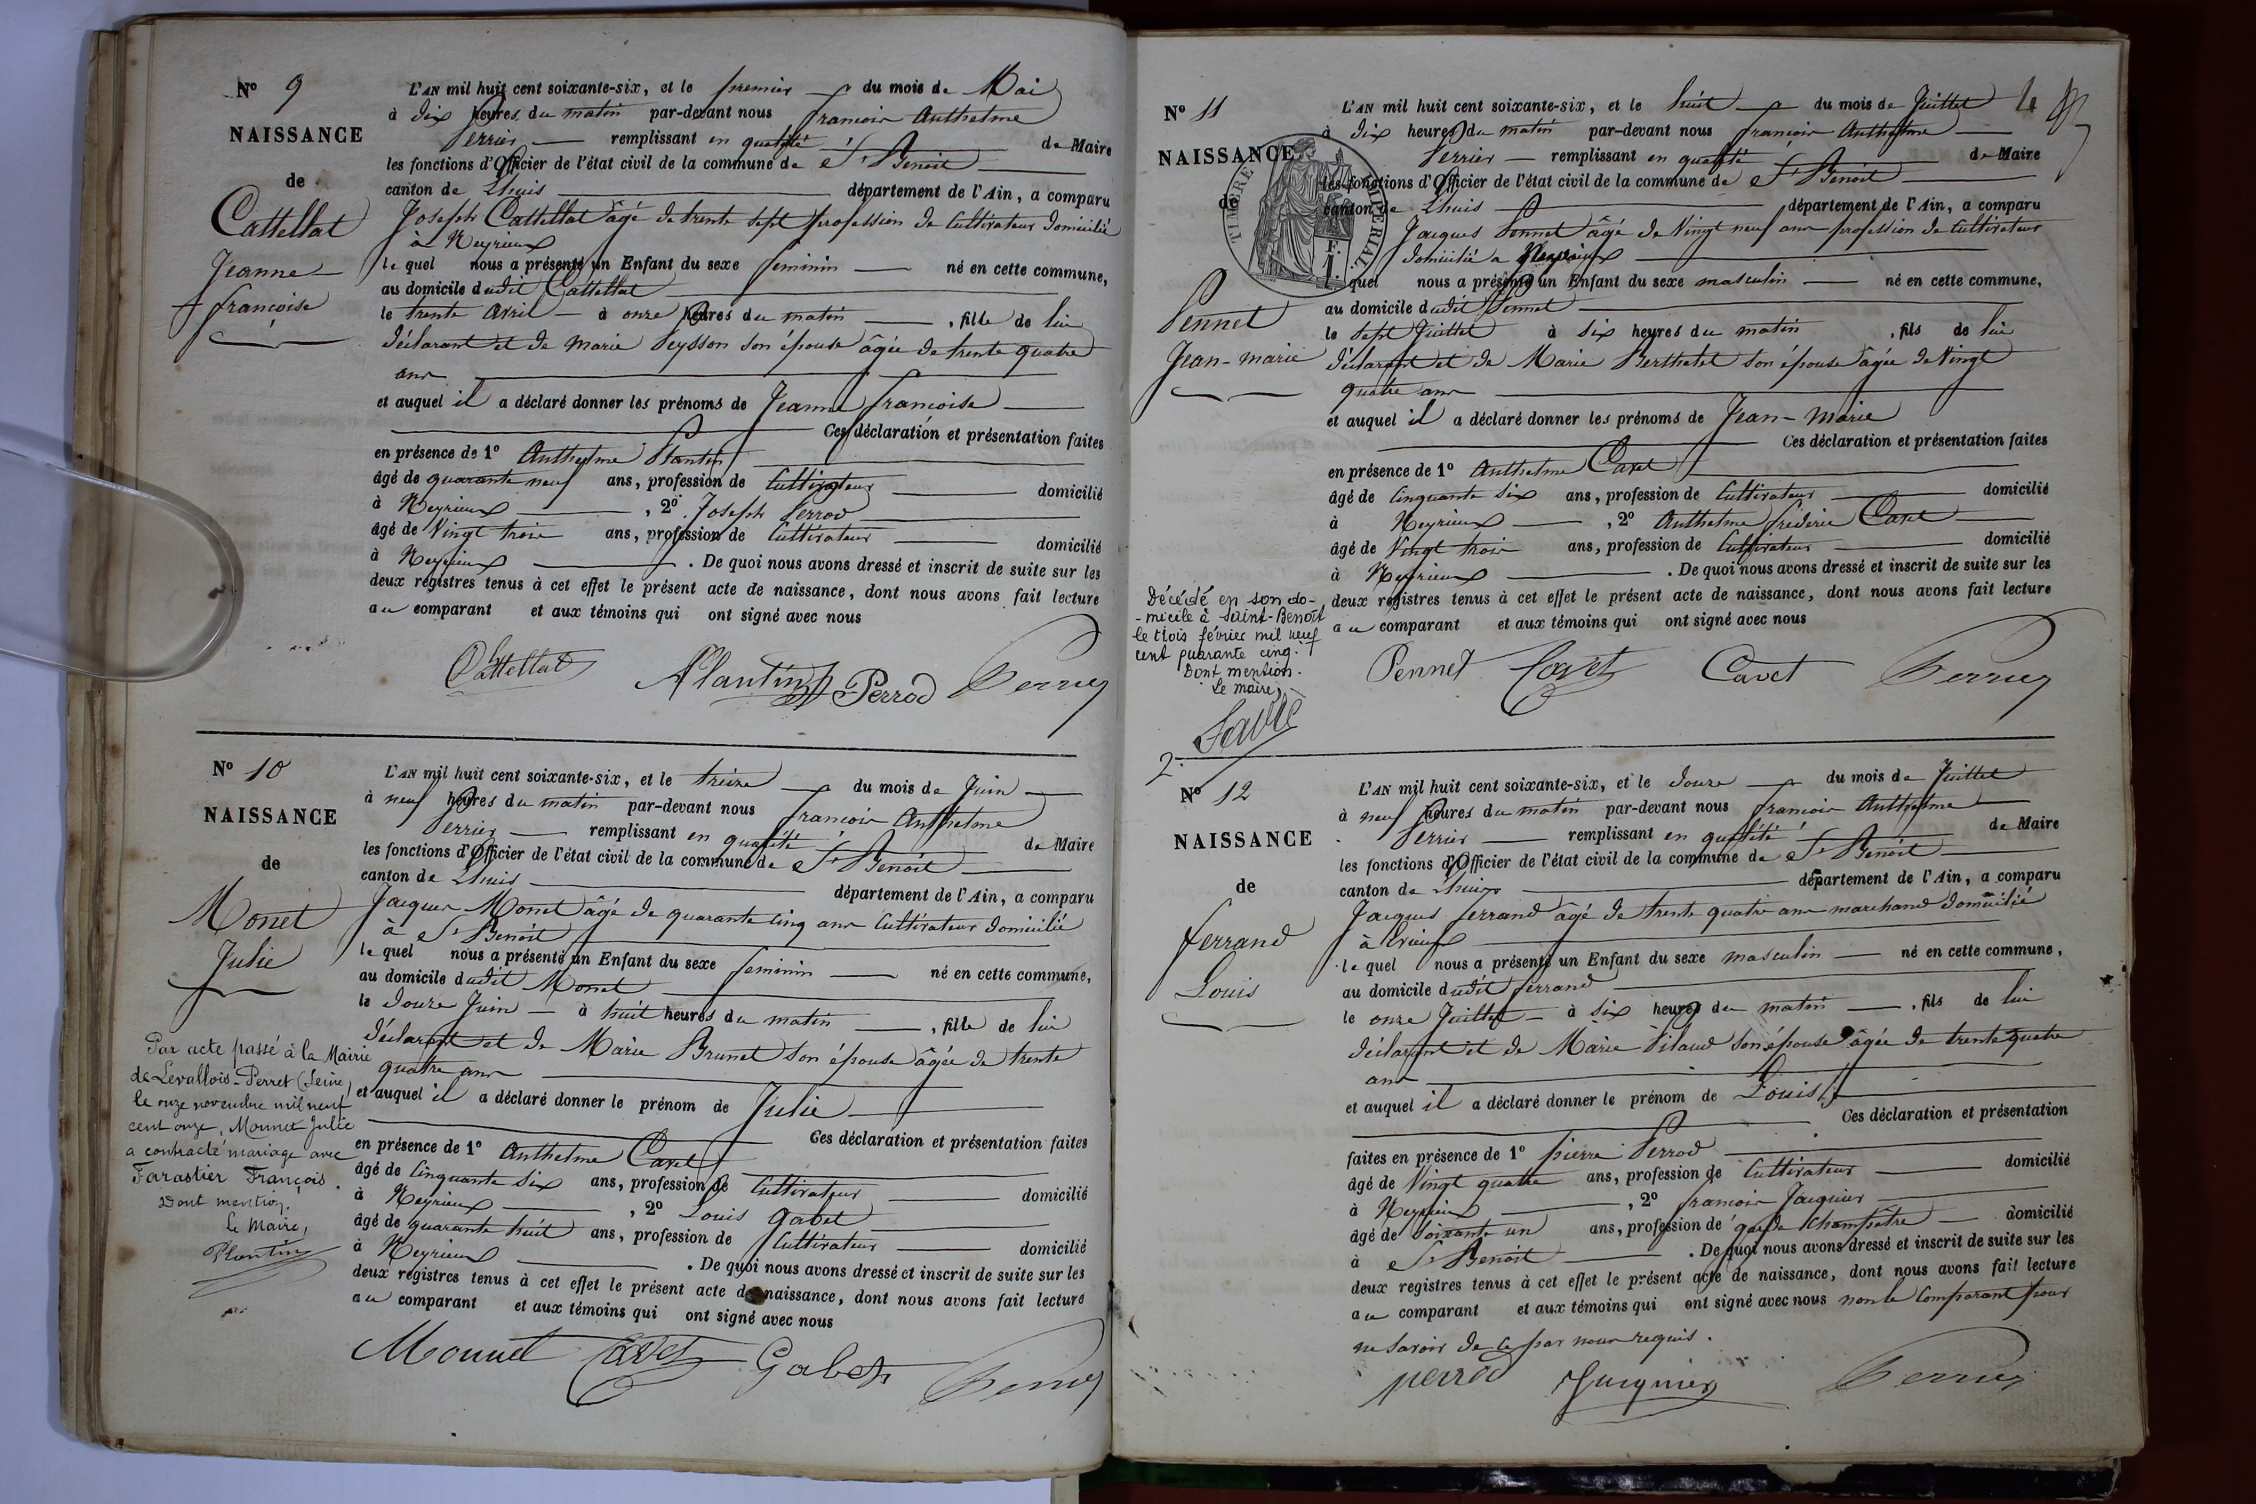 N° 9
NAISSANCE
de
Cattellat
Jeanne
françoise
L'AN mil huit cent soixante-six, et le premier du mois de Mai
à dix heures du matin par-devant nous françois Anthelme
Perrier remplissant en qualité de Maire
les fonctions d'Officier de l'état civil de la commune de St Benoit
canton de Lhuis département de l'Ain, a comparu
Joseph Cattellat âgé de trente sept profession de Cultivateur domicilié
à Neyrieux
lequel nous a présenté un Enfant du sexe feminin né en cette commune,
au domicile dudit Cattellat
le trente avril à onze heures du matin, fille de lui
déclarant et de marie Peysson son épouse âgée de trente quatre
ans
et auquel il a déclaré donner les prénoms de Jeanne françoise
Ces déclaration et présentation faites
en présence de 1° Anthelme Plantin
âgé de quarante neuf ans, profession de Cultivateur domicilié
à Neyrieux, 2° Joseph Perrod
âgé de Vingt trois ans, profession de Cultivateur domicilié
à Neyrieux. De quoi nous avons dressé et inscrit de suite sur les
deux registres tenus à cet effet le présent acte de naissance, dont nous avons fait lecture
au comparant et aux témoins qui ont signé avec nous
Cattellat Plantin Perrod Perrier
N° 10
NAISSANCE
de
Monet
Julie
Par acte passé à la Mairie
de Levallois-Perret (Seine)
le onze novembre mil neuf
cent onze, Monnet Julie
a contracté mariage avec
Farastier François.
Dont mention.
Le Maire,
Plantin
L'AN mil huit cent soixante-six, et le treize du mois de Juin
à neuf heures du matin par-devant nous françois Anthelme
Perrier remplissant en qualité de Maire
les fonctions d'Officier de l'état civil de la commune de St Benoit
canton de Lhuis département de l'Ain, a comparu
Jacques Monet âgé de quarante cinq ans Cultivateur domicilié
à St Benoit
lequel nous a présenté un Enfant du sexe feminin né en cette commune,
au domicile dudit Monet
le douze Juin à huit heures du matin, fille de lui
déclarant et de Marie Brunet son épouse âgée de trente
quatre ans
et auquel il a déclaré donner le prénom de Julie
Ces déclaration et présentation faites
en présence de 1° Anthelme Cavet
âgé de Cinquante six ans, profession de Cultivateur domicilié
à Neyrieux, 2° Louis Gabet
âgé de quarante huit ans, profession de Cultivateur domicilié
à Neyrieux. De quoi nous avons dressé et inscrit de suite sur les
deux registres tenus à cet effet le présent acte de naissance, dont nous avons fait lecture
au comparant et aux témoins qui ont signé avec nous
Monnet Cavet Gabet Perrier
N° 11
TIMBRE IMPÉRIAL
1 F.
NAISSANCE
de
Pennet
Jean-marie
Décédé en son do-
-micile à Saint-Benoît
le trois février mil neuf
cent quarante cinq.
Dont mention.
Le maire,
L'AN mil huit cent soixante-six, et le huit du mois de Juillet
à dix heures du matin par-devant nous françois Anthelme
Perrier remplissant en qualité de Maire
les fonctions d'Officier de l'état civil de la commune de St Benoit
canton de Lhuis département de l'Ain, a comparu
Jacques Pennet âgé de Vingt neuf ans profession de Cultivateur
domicilié a Neyrieux
lequel nous a présenté un Enfant du sexe masculin né en cette commune,
au domicile dudit Pennet
le sept Juillet à six heures du matin, fils de lui
déclarant et de Marie Berthelet son épouse âgée de Vingt
quatre ans
et auquel il a déclaré donner les prénoms de Jean-marie
Ces déclaration et présentation faites
en présence de 1° Anthelme Cavet
âgé de Cinquante six ans, profession de Cultivateur domicilié
à Neyrieux, 2° Anthelme fréderic Cavet
âgé de Vingt trois ans, profession de Cultivateur domicilié
à Neyrieux. De quoi nous avons dressé et inscrit de suite sur les
deux registres tenus à cet effet le présent acte de naissance, dont nous avons fait lecture
au comparant et aux témoins qui ont signé avec nous
Pennet Cavet Cavet Perrier
N° 12
NAISSANCE
de
ferrand
Louis
L'AN mil huit cent soixante-six, et le douze du mois de Juillet
à neuf heures du matin par-devant nous françois Anthelme
Perrier remplissant en qualité de Maire
les fonctions d'Officier de l'état civil de la commune de St Benoit
canton de Lhuis département de l'Ain, a comparu
Jacques ferrand âgé de trente quatre ans marchand domicilié
à
lequel nous a présenté un Enfant du sexe masculin né en cette commune,
au domicile dudit ferrand
le onze Juillet à six heures du matin, fils de lui
déclarant et de Marie son épouse âgée de trente quatre
ans
et auquel il a déclaré donner le prénom de Louis
Ces déclaration et présentation
faites en présence de 1° pierre Perrod
âgé de Vingt quatre ans, profession de Cultivateur domicilié
à Neyrieux, 2° françois Jacquier
âgé de Soixante un ans, profession de garde champêtre domicilié
à St Benoit. De quoi nous avons dressé et inscrit de suite sur les
deux registres tenus à cet effet le présent acte de naissance, dont nous avons fait lecture
au comparant et aux témoins qui ont signé avec nous non le Comparant pour
ne savoir de ce par nous requis.
perrod Jacquier Perrier